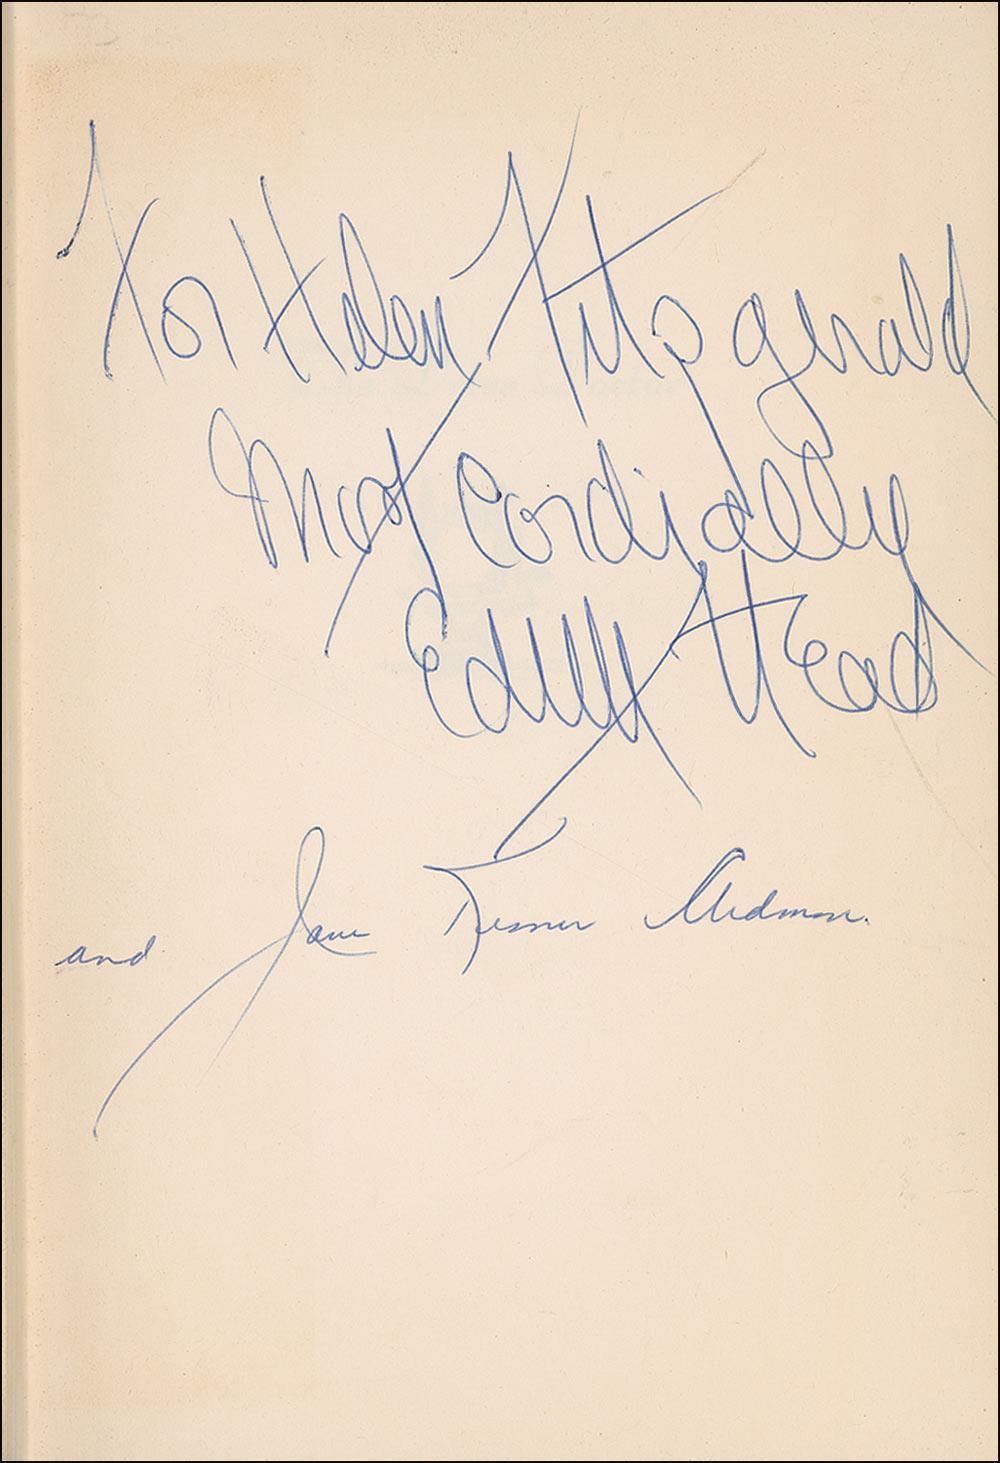 For Helen Fitzgerald
Most Cordially
Edith Head
and Jane Kesner Ardmore.